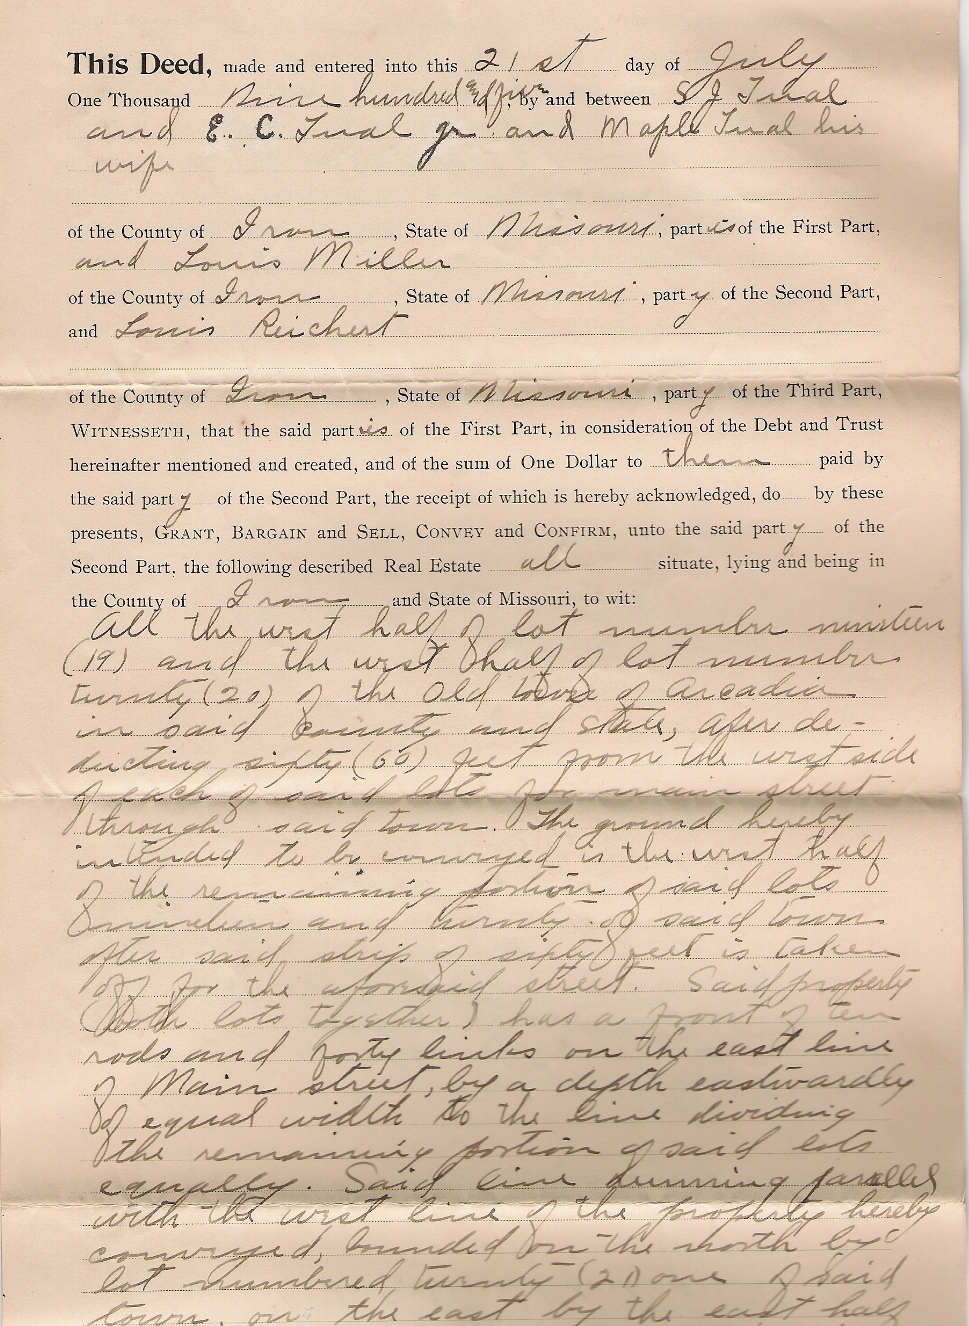 This Deed, made and entered into this 21st day of July
One Thousand Nine hundred and five, by and between S J Tual
and E. C. Tual jr. and Maple Tual his
wife
of the County of Iron, State of Missouri, parties of the First Part,
and Louis Miller
of the County of Iron, State of Missouri, party of the Second Part,
and Louis Reichert
of the County of Iron, State of Missouri, party of the Third Part,
WITNESSETH, that the said parties of the First Part, in consideration of the Debt and Trust
hereinafter mentioned and created, and of the sum of One Dollar to them paid by
the said party of the Second Part, the receipt of which is hereby acknowledged, do by these
presents, GRANT, BARGAIN and SELL, CONVEY and CONFIRM, unto the said party of the
Second Part, the following described Real Estate all situate, lying and being in
the County of Iron and State of Missouri, to wit:
All the west half of lot number nineteen
(19) and the west half of lot number
twenty (20) of the Old town of Arcadia
in said County and State, after de-
ducting sixty (60) feet from the west side
of each of said lots for main street
through said town. The ground hereby
intended to be conveyed is the west half
of the remaining portion of said lots
nineteen and twenty of said town
after said strip of sixty feet is taken
off for the aforesaid street. Said property
(both lots together) has a front of ten
rods and forty links on the east line
of Main street, by a depth eastwardly
of equal width to the line dividing
the remaining portion of said lots
equally. Said line running parallel
with the west line of the property hereby
conveyed, bunded on the north by
lot numbered twenty (21) one of said
town, on the east by the east half